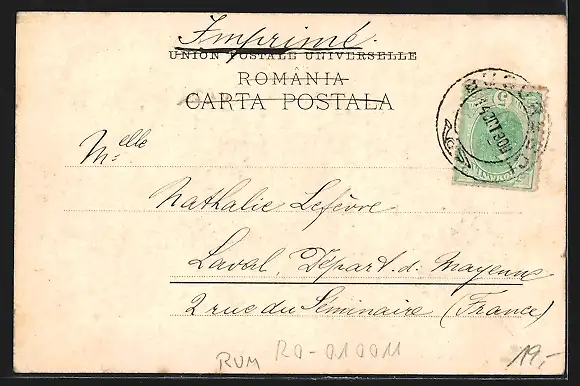 Imprimé
UNION POSTALE UNIVERSELLE
ROMÂNIA
CARTA POSTALA
5
Mᵉˡˡᵉ
Nathalie Lefèvre
Laval, Départ. d. Mayenne
2 rue du Séminaire (France)
RUM
RO-010011
19,-